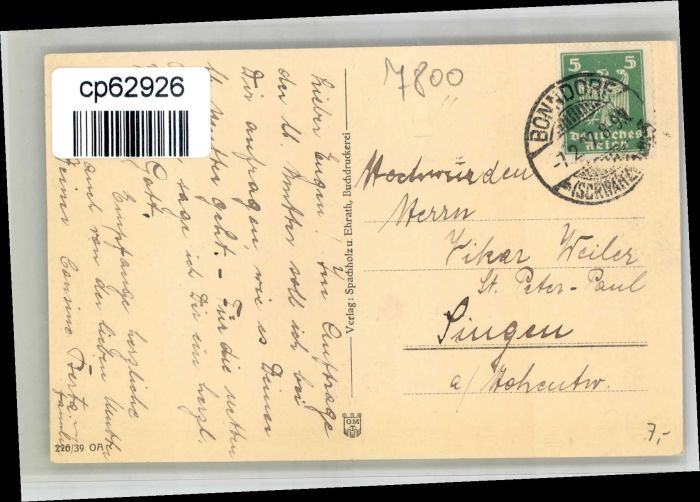 cp62926
7800
5 5
Deutsches
Reich
BONNDORF
(SCHWARZW.)
Lieber Eugen! Im Auftrage
der ll. Mutter soll ich bei
Dir anfragen, wie es Deiner
ll. Mutter geht. - Für die netten
sage ich Dir ein herzl.
Gott.
Empfange herzliche
und von der lieben Mutter
Deiner Cousine Berta
Familie
Verlag: Spachholz u. Ehrath, Buchdruckerei
Hochwürden
Herrn
Vikar Weiler
St. Peter-Paul
Singen
a/Hohentw.
OM
226/39 OA
7,-